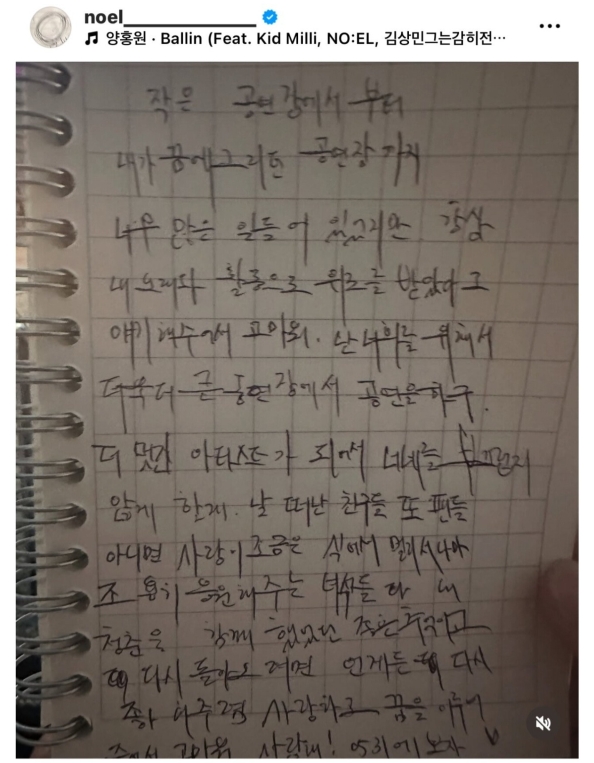 noel_______________
양홍원 · Ballin (Feat. Kid Milli, NO:EL, 김상민그는감히전…
작은 공연장에서 부터
내가 꿈에그리던 공연장 까지
너무 많은 일들이 있었지만 항상
내 노래와 활동으로 위로를 받았다고
얘기해주어서 고마워. 난 너희를 위해서
더욱더 큰 공연장에서 공연을하구.
더 멋진 아티스트가 되어서 너네를
않게 할게. 날 떠난 친구들 또 팬들
아니면 사랑이 조금은 식어서 멀리서나마
조용히 응원해주는 녀석들 다 내
청춘을 함께 했었던 좋은 추억이고
다시 돌아오려면 언제든 다시
좋아해주렴 사랑하고 꿈을 이루어
주어서 고마워 사랑해! 0531에보자